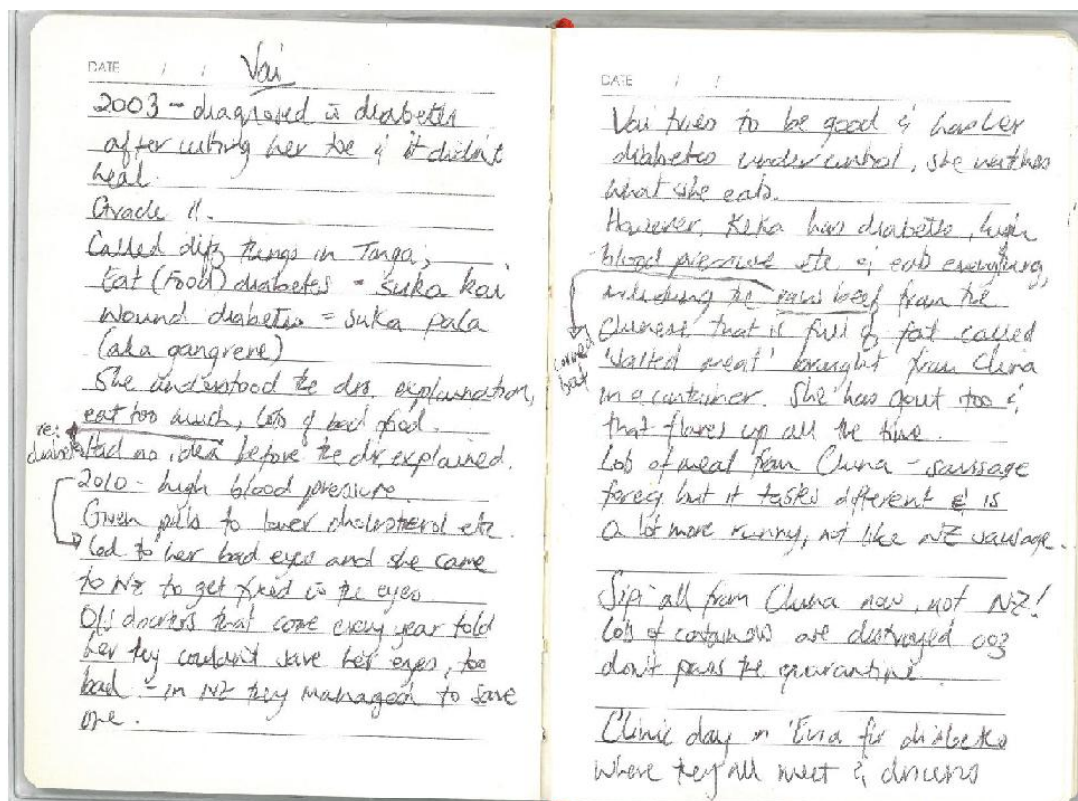 DATE / /
Vai
2003 - diagnosed c̄ diabetes
after cutting her toe & it didn't
heal.
Grade 11.
Called diff things in Tonga;
Eat (Food) diabetes = suka kai
Wound diabetes = suka pala
(aka gangrene)
She understood the drs. explaination,
eat too much, lots of bad food.
re:
diabetes
Had no idea before the dr. explained.
2010 - high blood pressure.
Given pills to lower cholesterol etc
Led to her bad eyes and she came
to NZ to get fixed c̄ the eyes.
O/S doctors that come every year told
her they couldn't save her eyes, too
bad. - in NZ they managed to save
one.
DATE / /
Vai tries to be good & has her
diabetes under control, she watches
what she eats.
However, Keka has diabetes, high
blood pressure etc & eats everything,
including the raw beef from the
corned
Chinese that is full of fat called
'salted meat' brought from China
in a container. She has gout too &
that flares up all the time.
Lots of meat from China - saussage
but it tastes different & is
a lot more runny, not like NZ sausage.
Sipi all from China now, not NZ!
Lots of containers are destroyed coz
don't pass the quarantine.
Clinic day in 'Eua for diabetes
where they all meet & discuss